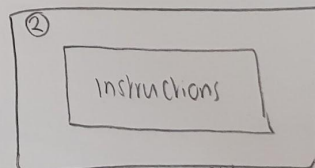 ②
Instructions